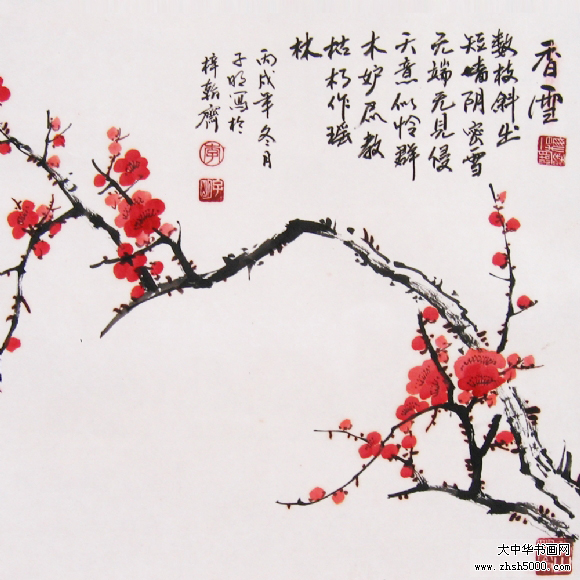 香雪
数枝斜出
短墙阴密雪
无端苦见侵
天意似怜群
木妒尽教
枯朽作瑶
林
丙戌年冬月
子明写於
大中华书画网
www.zhsh5000.com